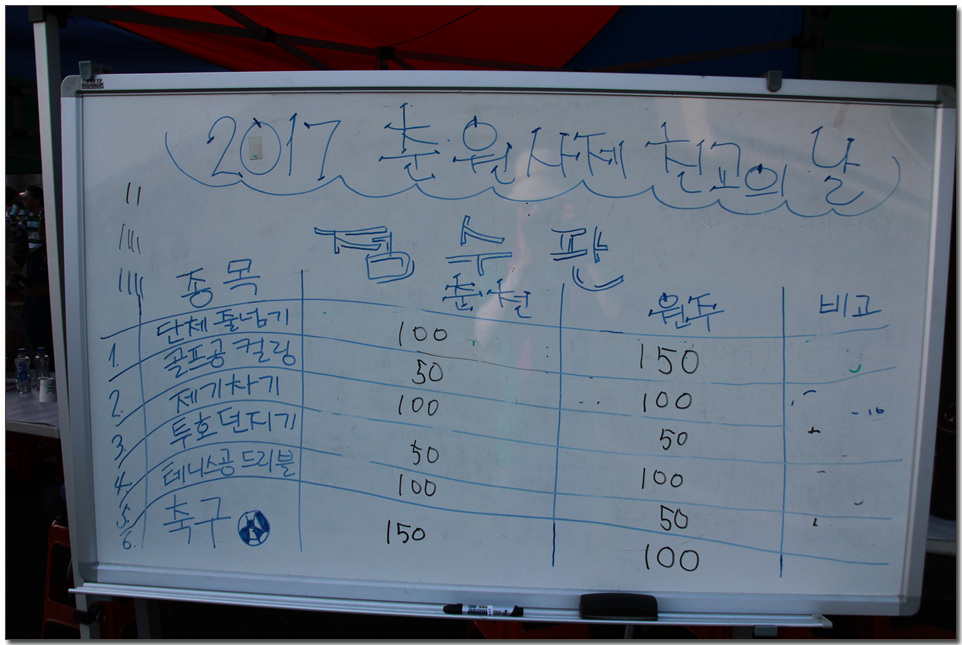 2017 춘·원 사제 친교의 날
점수판
종목 춘천 원주 비고
1. 단체 줄넘기 100 150
2. 골프공 컬링 50 100
3 제기차기 100 50
4. 투호 던지기 50 100
5. 테니스공 드리블 100 50
6. 축구 150 100